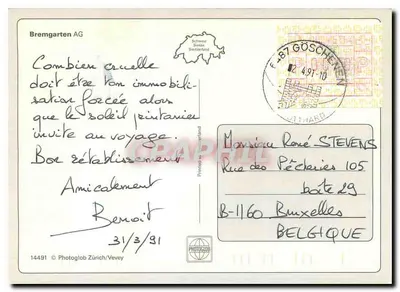 Bremgarten AG
Combien cruelle
doit être ton immobili-
sation forcée alors
que le soleil printanier
invite au voyage.
Bon rétablissement
Amicalement
Benoit
31/3/91
6487 GÖSCHENEN
2. 4. 91-10
Monsieur René STEVENS
Rue des Pêcheries 105
boîte 29
B-1160 Bruxelles
BELGIQUE
14491 © Photoglob Zürich/Vevey